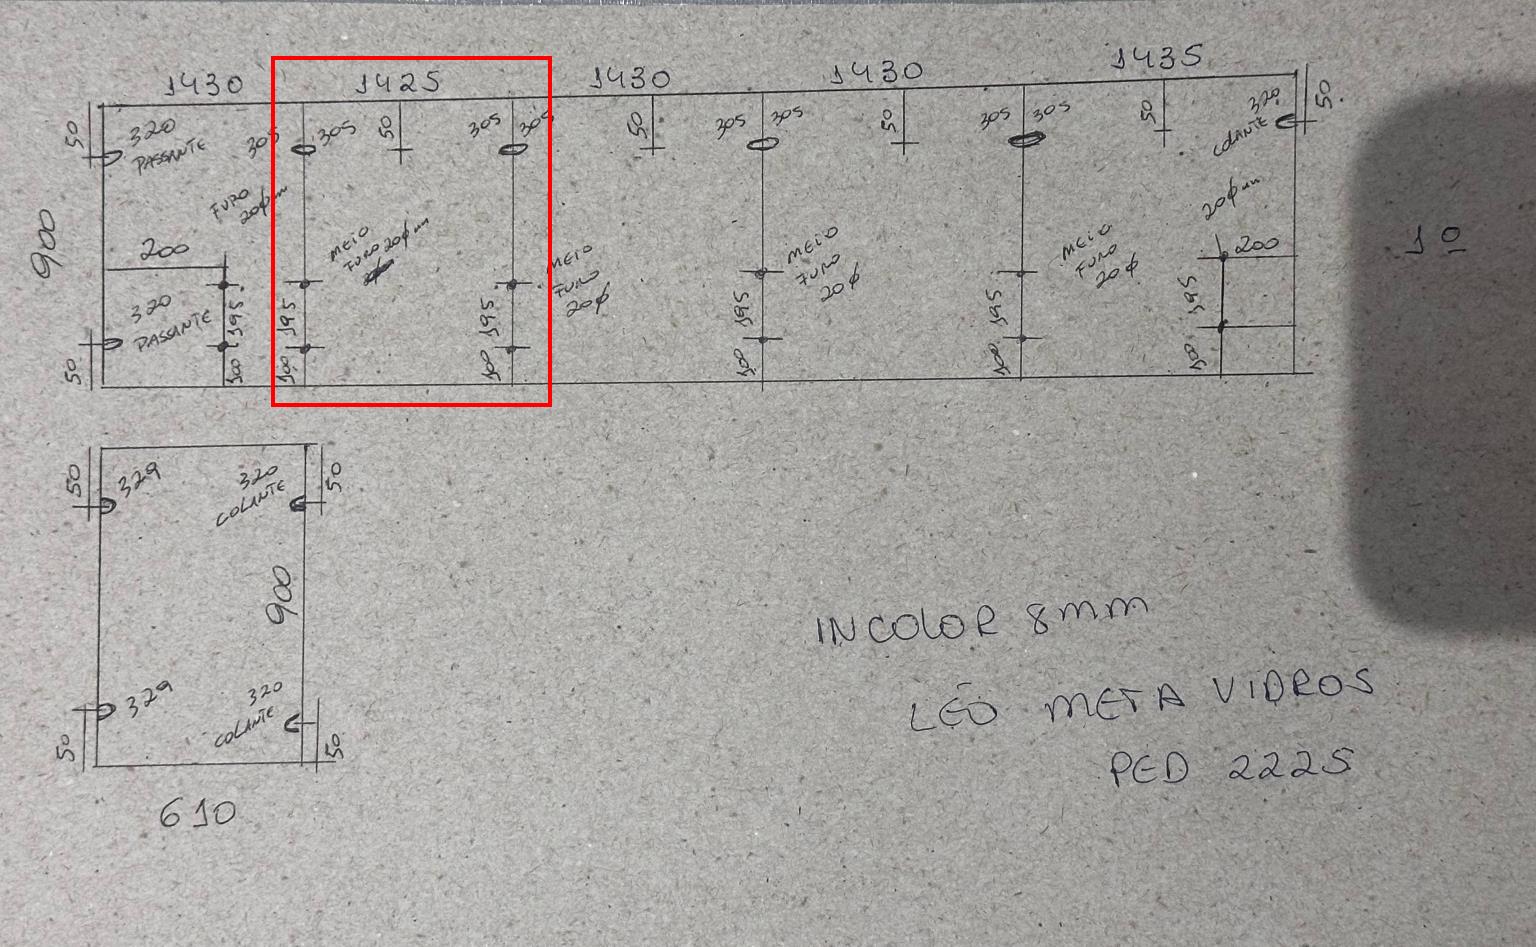 1430 1425 1430 1430 1435
50 320 PASSANTE 305 305 50 305 305 50 305 305 50 305 305 50 320 COLANTE 50
FURO 20ϕmm
MEIO FURO 20ϕmm
MEIO FURO 20ϕ
MEIO FURO 20ϕ
MEIO FURO 20ϕ
20ϕmm
900
200
200
1º
320 PASSANTE
195 195 195 195 195 195
50 100 100 100 100 100 100
50 329 320 COLANTE 50
900
50 329 320 COLANTE 50
610
INCOLOR 8mm
LÉO META VIDROS
PED 2225